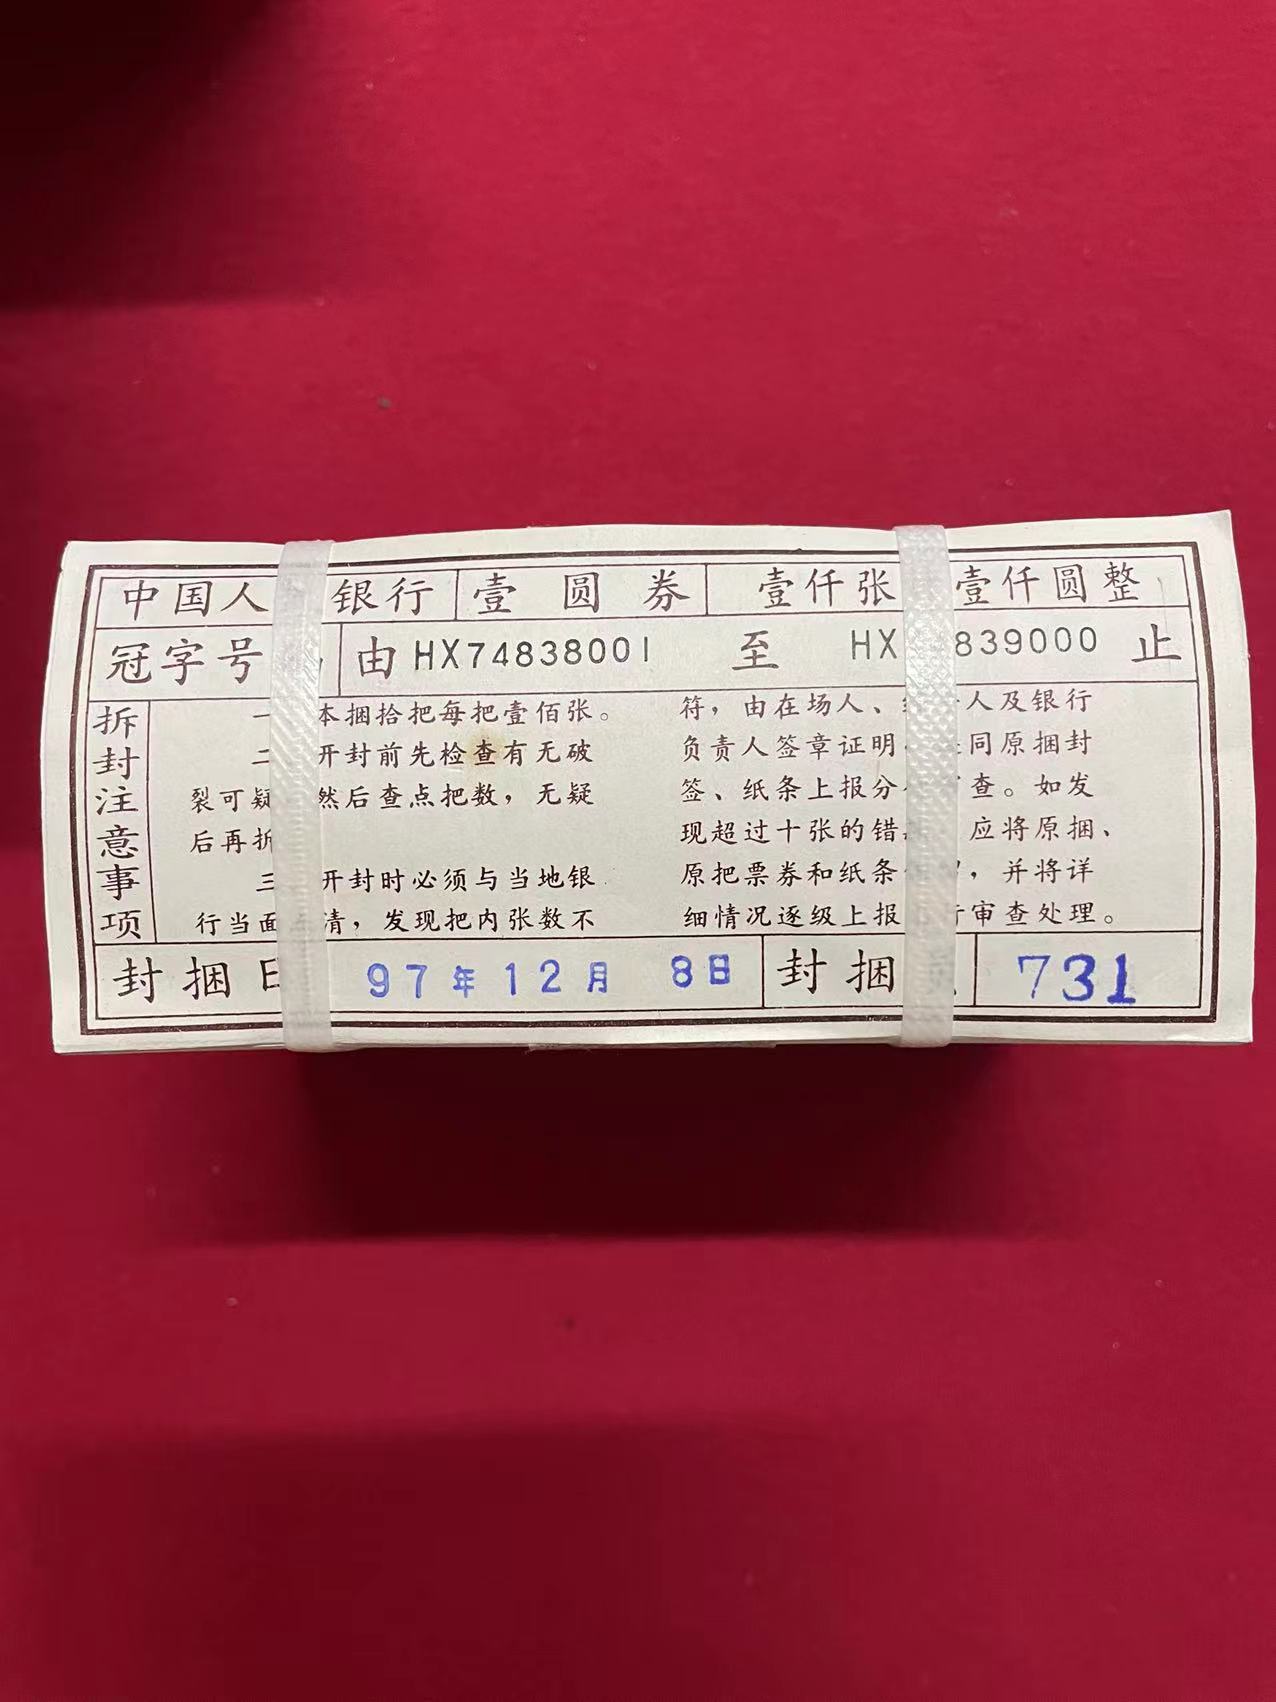 中国人 银行 壹圆券 壹仟张 壹仟圆整
冠字号 由 HX74838001 至 HX 839000 止
拆封注意事项
一 本捆拾把每把壹佰张。
二 开封前先检查有无破
裂可疑 然后查点把数，无疑
后再拆
三 开封时必须与当地银
行当面 清，发现把内张数不
符，由在场人、 人及银行
负责人签章证明 同原捆封
签、纸条上报分 查。如发
现超过十张的错 应将原捆、
原把票券和纸条 ，并将详
细情况逐级上报 行审查处理。
封捆日 97年12月 8日 封捆 731